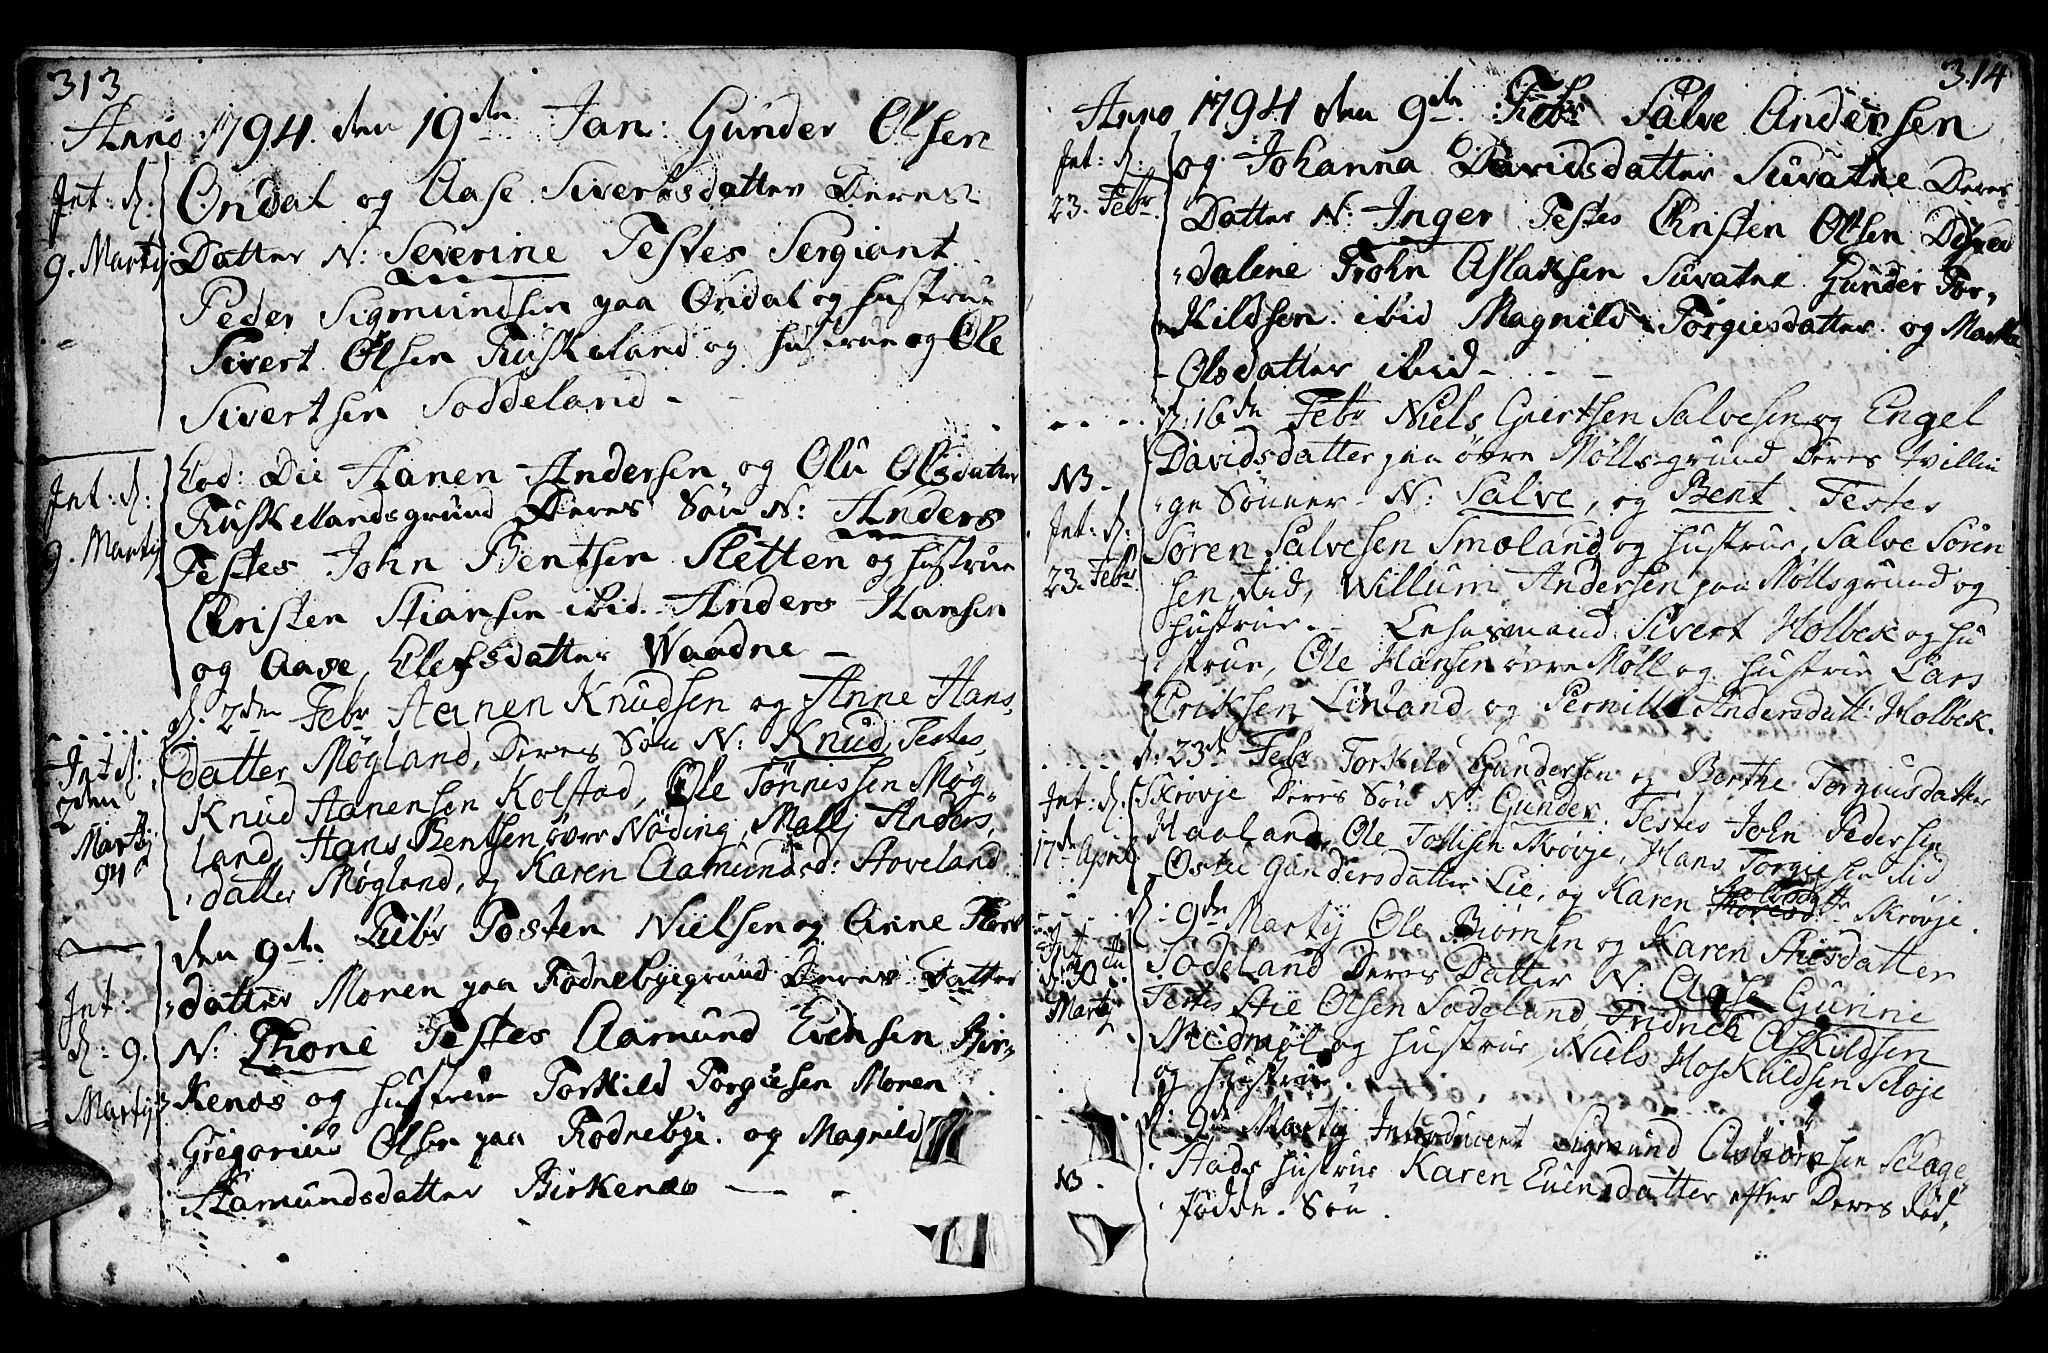 313
Anno 1794. den 19den Jan: Gunder Olsen
Int: d:
9. Martij
Ondal og Aase Sivertsdatter Deres
Datter N: Severine Testes Sergiant
Peder Sigmundsen paa Ondal og hustrue
Sivert Olsen Ruskeland og hustrue og Ole
Sivertsen Soddeland -
Int: d:
9. Martij
Eod: Die Aanen Andersen og Olu Olsdatter
Ruskelandsgrund Deres Søn N: Anders
Testes John Bentsen Sletten og hustrue
Christen Stiansen ibid. Anders Hansen
og Aase Elefsdatter Waadne -
Int d:
2den
Martij
94
d: 2den Febr Aanen Knudsen og Anne Hans,
datter Møgland, Deres Søn N: Knud, Testes,
Knud Aanensen Kolstad, Ole Tønnissen Møg,
land, Hans Bentsen øvre Nøding, Mallj Anders,
datter Møgland, og Karen Aamundsd: Stoveland.
Int:
d: 9.
Martij
den 9den Febr Tosten Nielsen og Anne
datter Monen paa Rødnebyegrund Deres Datter
N: Thone Testes Aamund Evensen Bir,
kenes og hustrue Torkild Torgiesen Monen
Gregorius Olsen paa Rødnebye. og Magnild
Aamundsdatter Birkenes - -
314
Anno 1794 den 9de. Febr Salve Andersen
Int: d:
23. Febr.
og Johanna Davidsdatter Suvatne Deres
Datter N: Inger Testes Christen Olsen
dalene Trohn Aslaksen Suvatne Gunder Tor,
kildsen. ibid Magnild Torgiesdatter. og Marthe
Olsdatter ibid - - -
NB.
Int: d:
23. Febr.
d: 16de Febr Niels Giertsen Salvesen og Engel
Davidsdatter paa øvre Mølls grund Deres tvillin
ge Sønner N: Salve, og Bent. Testes
Søren Salvesen Smoland og hustrue, Salve Søren
sen ibid, Willum Andersen paa Møllsgrund og
hustrue. - Lehnsmand Sivert Holbek og hu
strue, Ole Hansen øvre Møll og hustrue Lars
Eriksen Linland og Pernille Andersdatt: Holbek.
Int: d.
17de April
d: 23de Febr Torkild Gundersen og Berthe Torgiusdatter
Skrøvje Deres Søn N: Gunder. Testes John Pedersen
Haaland, Ole Tollisen Skrøvje, Hans Torgiesen ibid
Østie Gundersdatter Lie, og Karen Skrøvje.
Martij
d: 9de Martij Ole Biørnsen og Karen Stiesdatter
Sødeland Deres Datter N: Olase Gurine
Testes Stie Olsen Sødeland, Fridrick Askildsen
Meidmøl og hustrue, Niels Hoskuldsen Seløje
og hustrue. -
NB.
d: 9de Martij Introduceert Sigmund Asbiørnsen Selage,
Stads hustrue Karen Evensdatter efter Deres død,
fødde Søn.